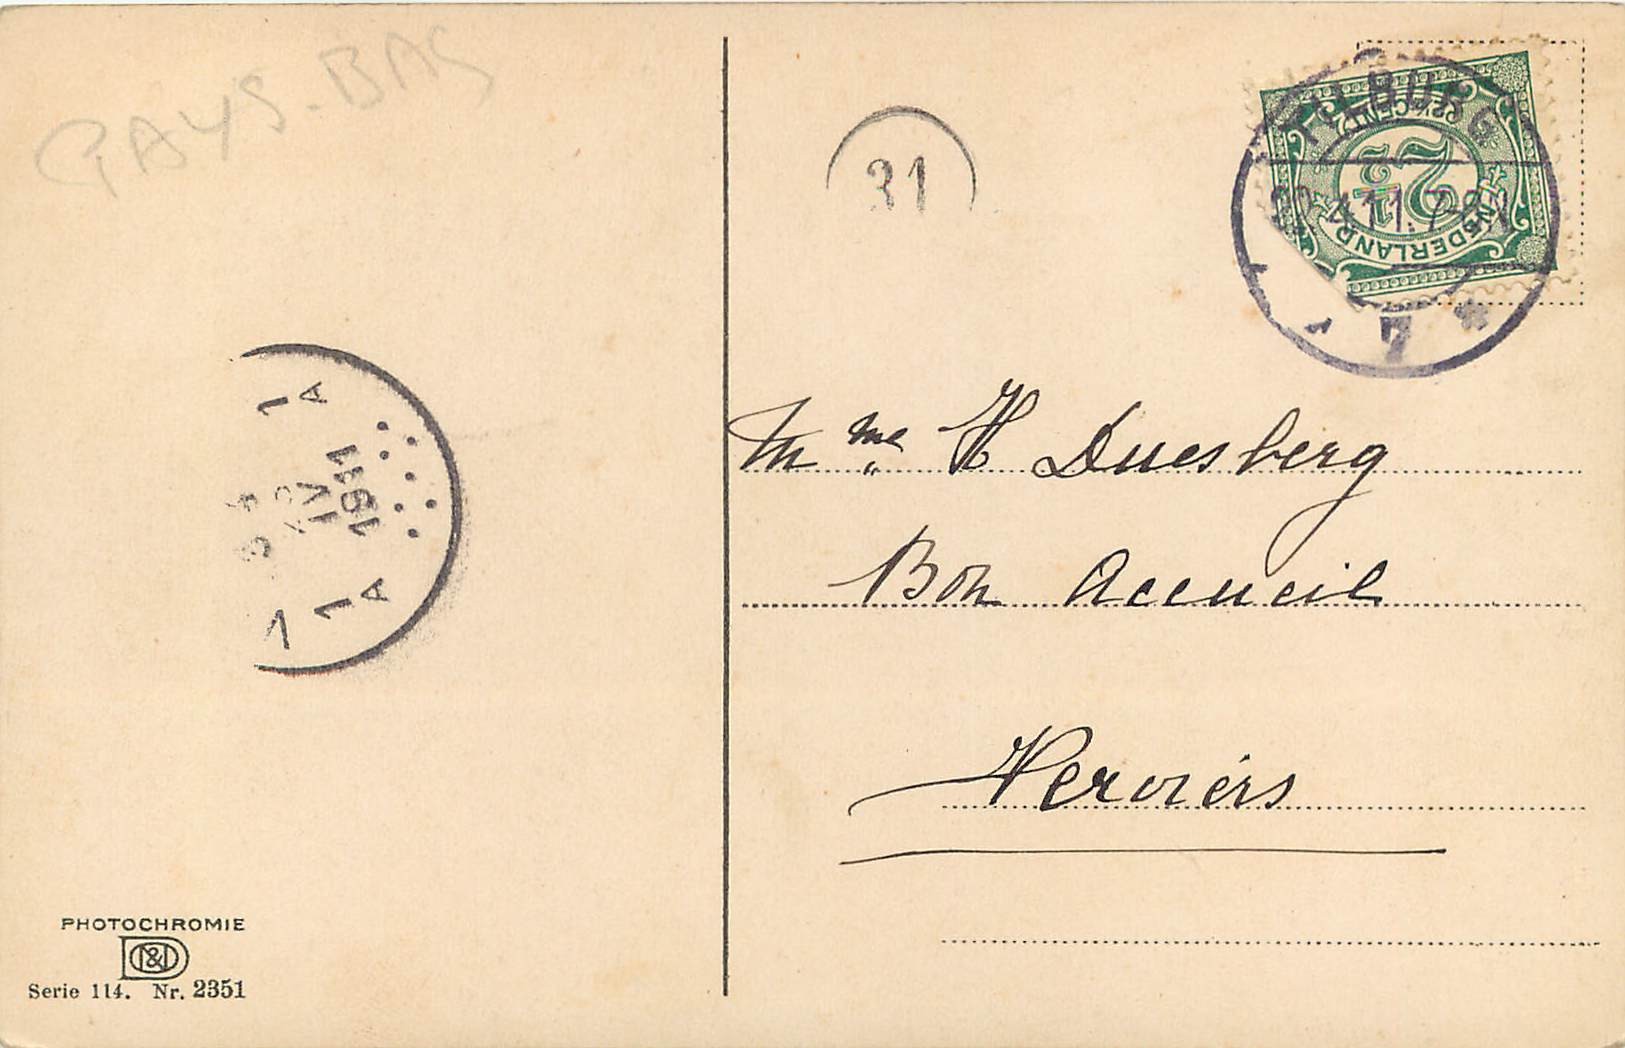 PAYS-BAS
31
TILBURG
4.11.7-8
2½ CENT 2½
NEDERLAND
1 A
IV
1911
1 A
Mme H Duesberg
Bon Accueil
Verviers
PHOTOCHROMIE
N&D
Serie 114. Nr. 2351